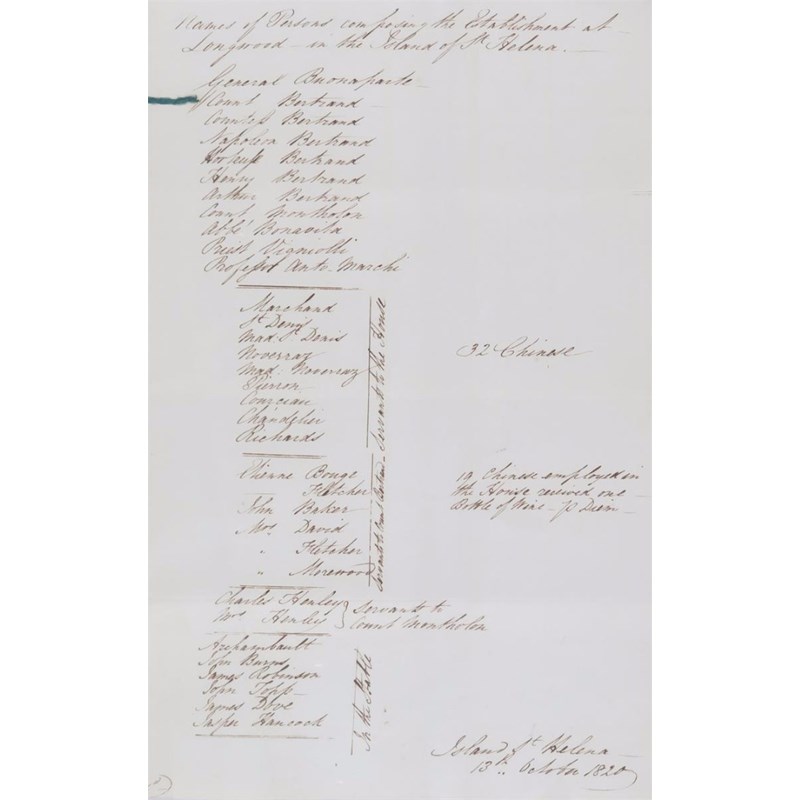 Names of Persons composing the Establishment at
Longwood - in the Island of St Helena. -
General Buonaparte -
Count Bertrand -
Countess Bertrand
Napoleon Bertrand
Hortense Bertrand
Henry Bertrand
Arthur Bertrand
Count Montholon
Abbé Bonavita
Preist Vigniolli
Professor Anto-Marchi
Marchand
St Denis
Mad. St Denis
Noverraz
Mad. Noverraz
Pierron
Chandelier
Richards
Servants to the House
32 Chinese
Etienne Bouge
Fletcher
John Baker
Mrs David
" Fletcher
" Morewood
Servants to Count Bertrand
19 Chinese employed in
the House received one
Bottle of Wine - p Diem -
Charles Henley
Mrs Henley
Servants to
Count Montholon
Archambault
John Burns
James Robinson
John Topp -
James Dove
Jasper Hancock
In the Stable
Island St Helena
13th October 1820